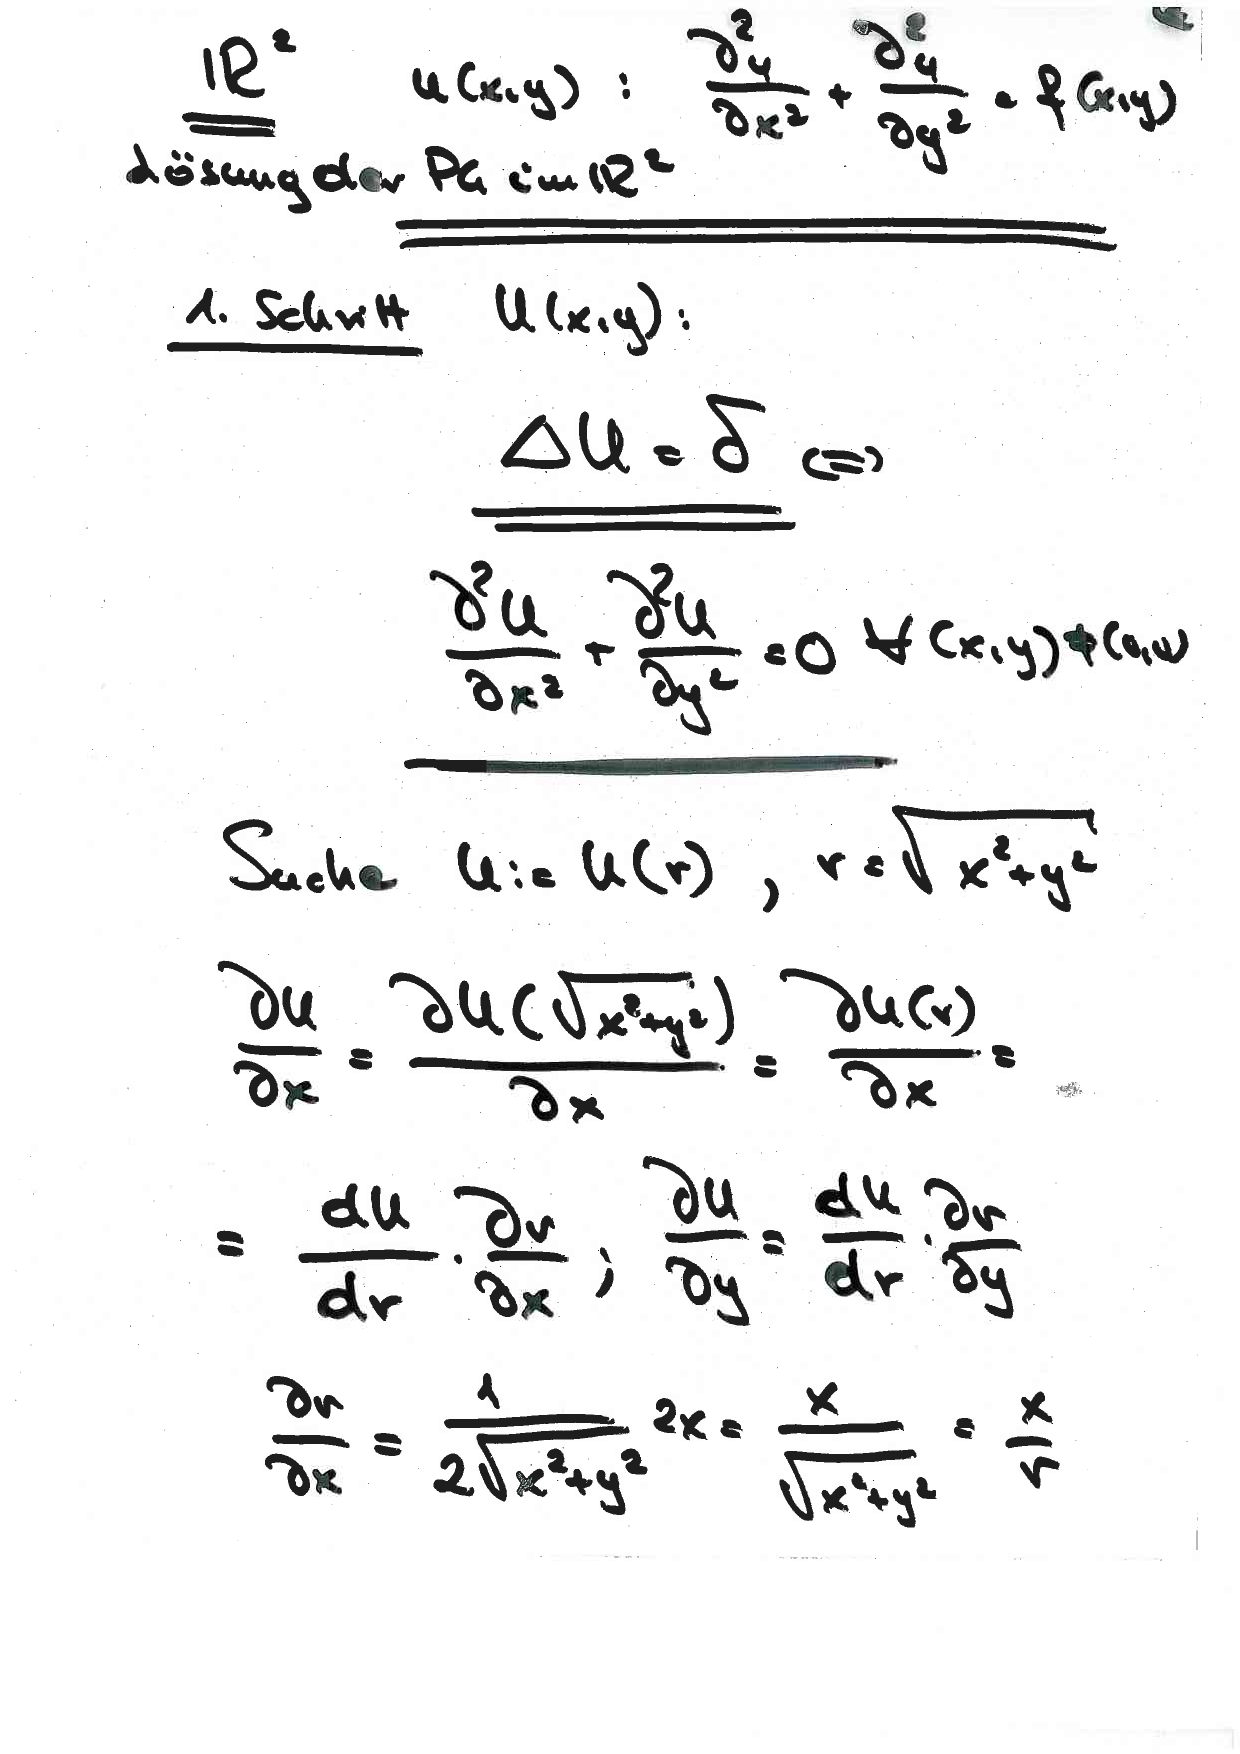 ℝ² u(x,y) : ∂²u/∂x² + ∂²u/∂y² = f(x,y)
Lösung der PG im ℝ²
1. Schritt U(x,y) :
ΔU = δ ⟺
∂²U/∂x² + ∂²U/∂y² = 0 ∀ (x,y) ≠ (0,0)
Suche U := U(r) , r = √(x²+y²)
∂U/∂x = ∂U(√(x²+y²))/∂x = ∂U(r)/∂x =
= dU/dr · ∂r/∂x ; ∂U/∂y = dU/dr · ∂r/∂y
∂r/∂x = 1/(2√(x²+y²)) 2x = x/√(x²+y²) = x/r